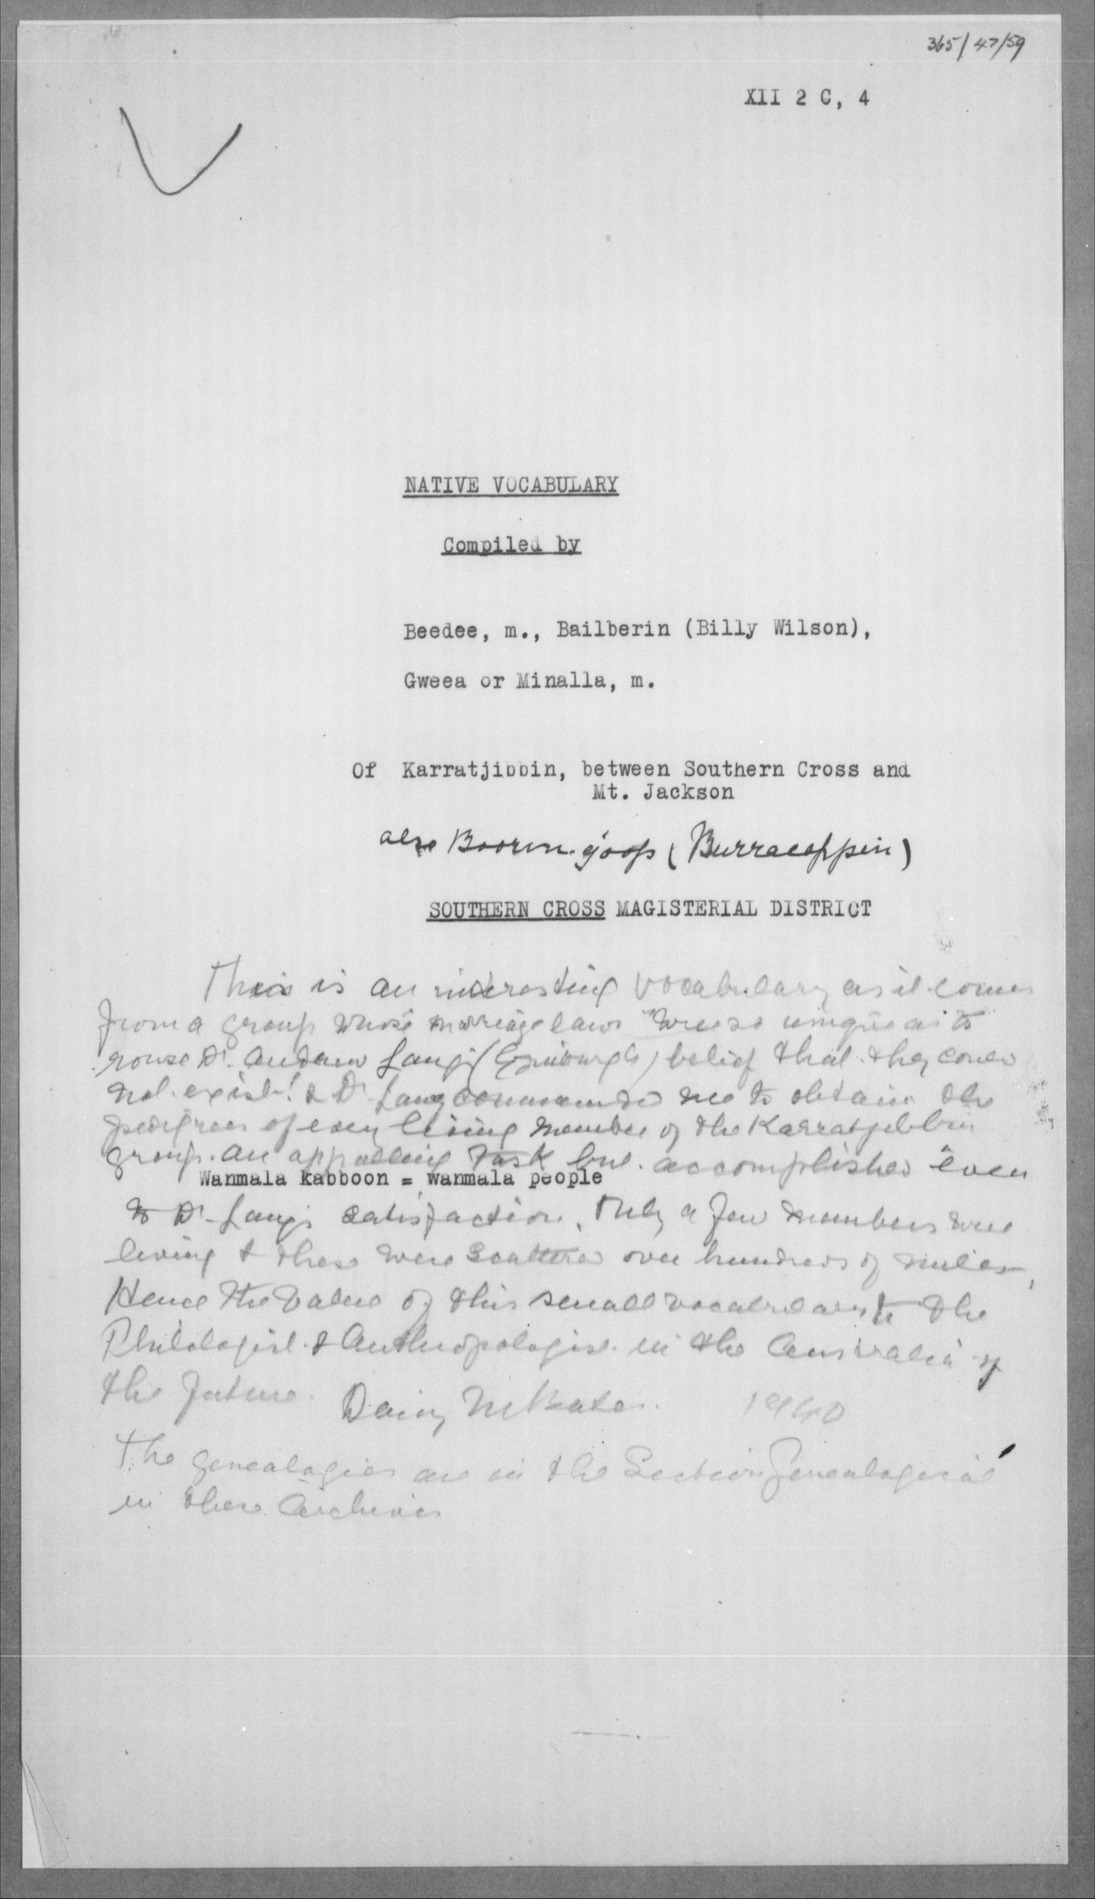 365/47/59
XII 2 C, 4
NATIVE VOCABULARY
Compiled by
Beedee, m., Bailberin (Billy Wilson),
Gweea or Minalla, m.
Of Karratjibbin, between Southern Cross and
Mt. Jackson
also Boorn-goop (Burracoppin)
SOUTHERN CROSS MAGISTERIAL DISTRICT
This is an interesting vocabulary as it comes
from a group whose marriage laws were so unique as to
rouse Dr. Andrew Lang's (Edinburgh) belief that they could
not exist! & Dr Lang commanded me to obtain the
pedigrees of every living member of the Karratjibbin
group. An appalling task but accomplished even
Wanmala kabboon = wanmala people
to Dr. Lang's satisfaction. Only a few members were
living & these were scattered over hundreds of miles,
Hence the value of this small vocabulary to the
Philologist & Anthropologist in the Australia of
the future. Daisy M Bates. 1940
The genealogies are in the Section Genealogical
in these Archives